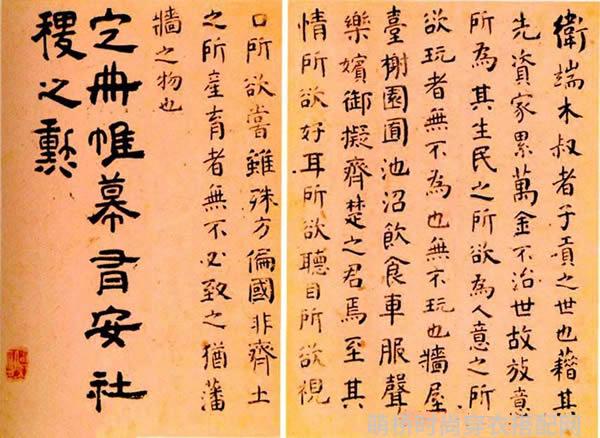 衛端木叔者子貢之世也藉其
先資家累萬金不治世故放意
所為其生民之所欲為人意之所
欲玩者無不為也無不玩也牆屋
臺榭園囿池沼飲食車服聲
樂嬪御擬齊楚之君焉至其
情所欲好耳所欲聽目所欲視
口所欲嘗雖殊方偏國非齊土
之所產育者無不必致之猶藩
牆之物也
定冊帷幕有安社
稷之勲
时尚穿衣搭配网